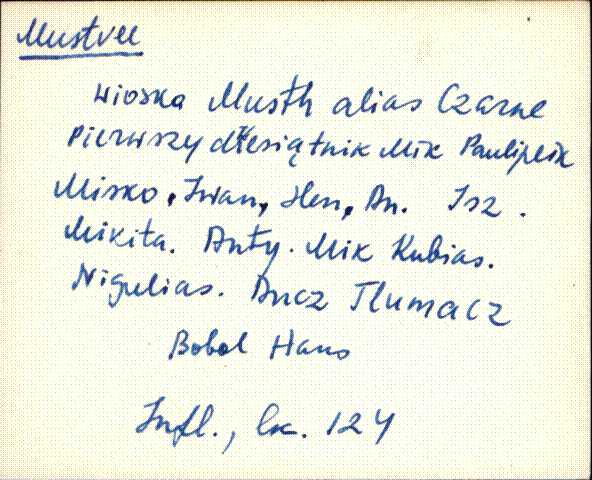 Mustvee
Wioska Musth alias Czarne
Pierwszy dziesiątnik Mik Paulipeik
Misko, Iwan, Hen, An. Isz.
Mikita. Anty. Mik Kubias.
Nigulias. Ancz Tlumacz
Bobol Hans
Infl., lk. 124